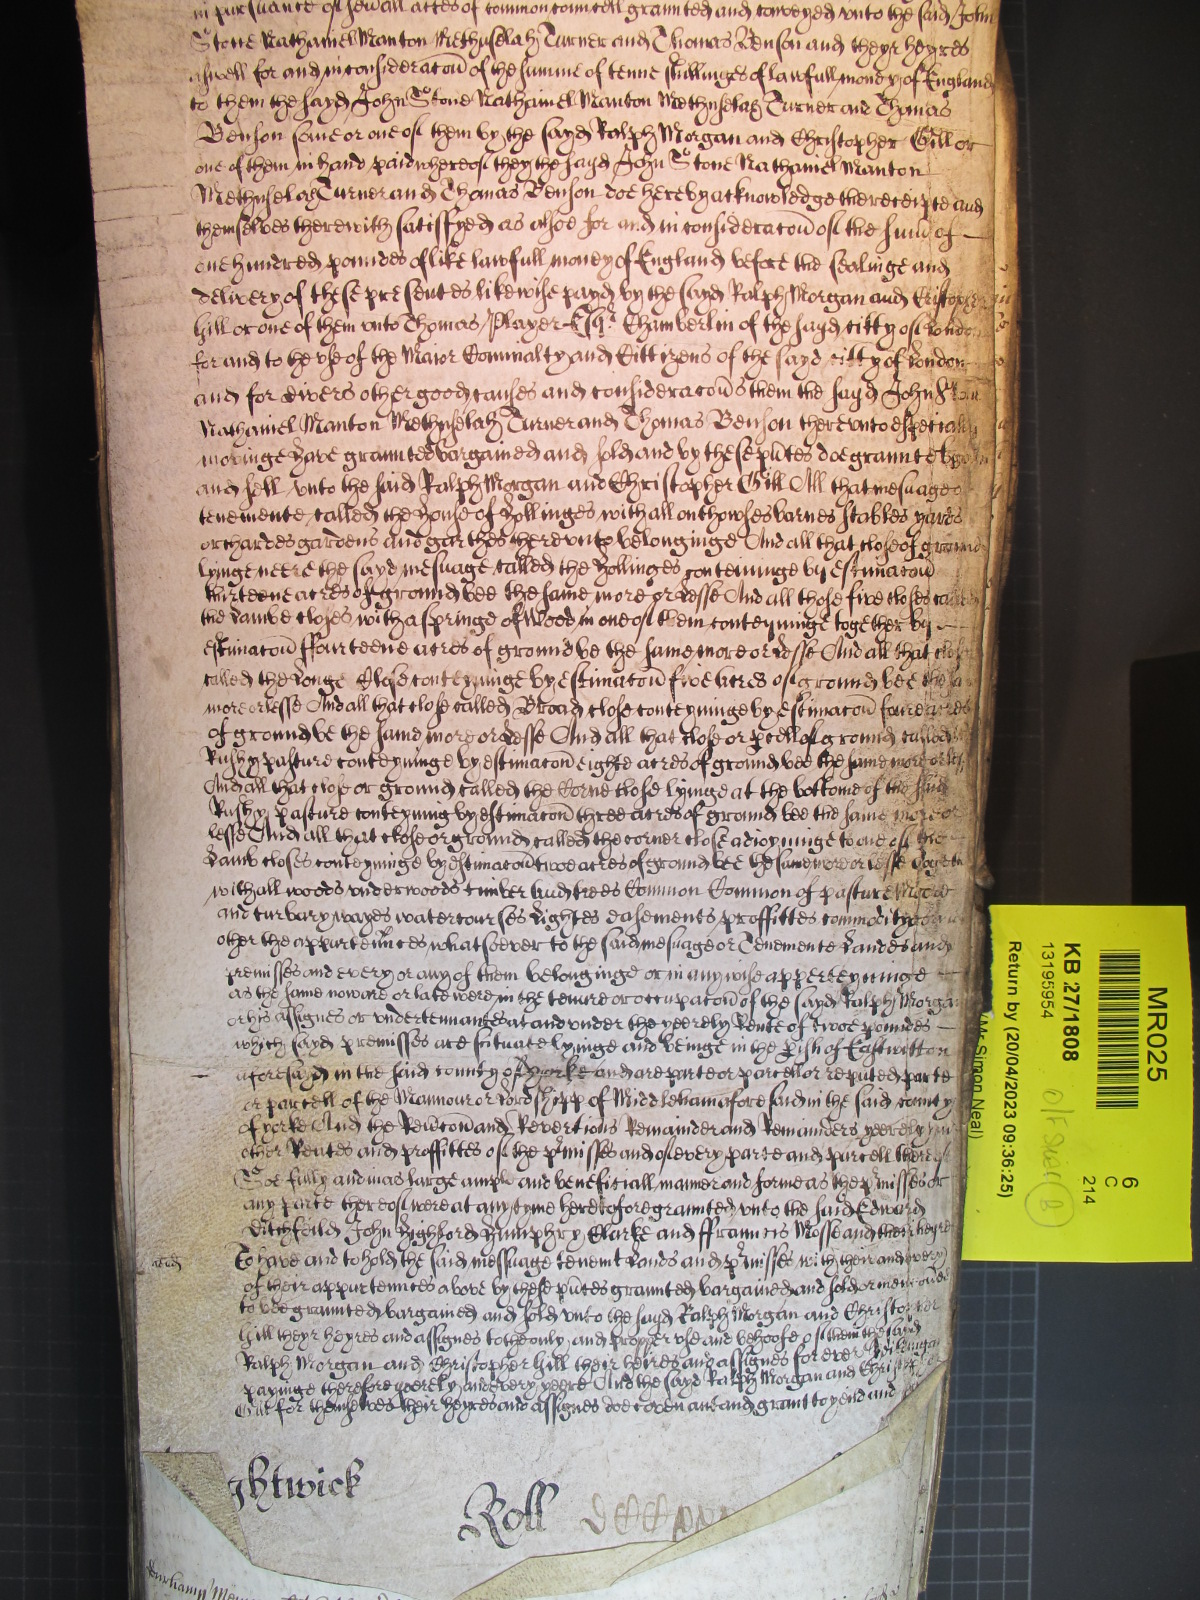 in pursuance of severall actes of common councell graunted and conveyed unto the said John
Stone Nathaniel Manton Methuselah Turner and Thomas Benson and theyr heyres
aswell for and in consideracōn of the summe of tenne shillinges of lawfull money of England
to them the sayd John Stone Nathaniel Manton Methuselah Turner and Thomas
Benson some or one of them by the sayd Ralph Morgan and Christopher Gill or
one of them in hand paid whereof they the sayd John Stone Nathaniel Manton
Methuselah Turner and Thomas Benson doe hereby acknowledge the receipte and
themselves therewith satisfyed as alsoe for and in consideracōn of the sum of
one hundred poundes of like lawfull money of England before the sealinge and
delivery of these presentes likewise payd by the sayd Ralph Morgan and Cristopher
Gill or one of them unto Thomas Player Esqr Chamberlin of the sayd citty of London
for and to the use of the Maior Cominalty and Cittizens of the sayd citty of London
and for divers other good causes and consideracōns them the sayd John Stone
Nathaniel Manton Methuselah Turner and Thomas Benson thereunto especially
movinge have graunted bargained and sold and by these pñtes doe graunte
and sell unto the said Ralph Morgan and Christopher Gill All that mesuage or
tenemente called the house of Hollinges with all outhowses barnes stables yardes
orchardes gardens and garthes thereunto belonginge And all that close of ground
lyinge neere the sayd mesuage called the Hollinges conteyninge by estimacōn
thirteene acres of ground bee the same more or lesse And all those five closes called
the Lambe closes with a springe of Wood in one of them conteyninge together by
estimacōn ffourteene acres of ground be the same more or lesse And all that close
called the Longe Close conteyninge by estimacōn five acres of ground bee the same
more or lesse And all that close called Broad close conteyninge by estimacōn foure acres
of ground be the same more or lesse And all that close or pcell of ground called
Rushy pasture conteyninge by estimacōn eighte acres of ground bee the same more or lesse
And all that close or ground called the Corne close lyinge at the bottome of the said
Rushy pasture conteyning by estimacōn three acres of ground bee the same more or
lesse And all that close or ground called the corner close adioyninge to one of the
Lambe closes conteyninge by estimacōn twoe acres of ground bee the same more or lesse Togeth
with all woods underwoods timber and trees Common Common of pasture
and turbary wayes watercourses Lightes easements proffittes commodityes
other the appurteñnces whatsoever to the said mesuage or Tenemente Landes and
premisses and every or any of them belonginge or in any wise apperteyninge
as the same now are or late were in the tenure or occupacōn of the sayd Ralph Morgan
or his assignes or undertennantes at and under the yeerely Rente of twoe poundes
which sayd premisses are scituate lyinge and beinge in the pish of Eastwitton
aforesayd in the said county of Yorke and are parte or parcell or reputed parte
or parcell of the Mannour or Lordshipp of Middleham aforesaid in the said county
of yorke And the Revcōn and Revertions Remainder and Remainders yeerely and
other Rentes and proffittes of the pmisses and of every parte and parcell thereof
Soe fully and in as large ample and beneficiall manner and forme as the pmisses or
any parte thereof were at any tyme heretofore graunted unto the said Edward
Ditchfeild John Highlord Humphry Clarke and ffrancis Mosse and their heyres
To have and to hold the said messuage tenemt Lands and pmisses with their and every
of their appurtennces above by these pñtes graunted bargained and sold or mencioned
to bee graunted bargained and sold unto the sayd Ralph Morgan and Christopher
Gill theyr heyres and assignes to the only and propper use and behoofe of them the said
Ralph Morgan and Christopher Gill their heires and assignes for ever
payinge therefore yeerely and every yeere And the sayd Ralph Morgan and Christopher
Gill for themselves their heyres and assignes doe covenant and grant to and
ghtwick
Roll
MR025
6
C
214
KB 27/1808
13195954
Return by (20/04/2023 09:36:25)
(Mr Simon Neal)